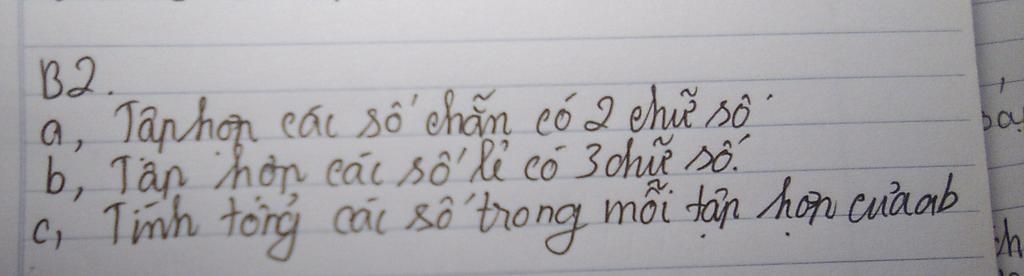 B2.
a, Tập hợp các số chẵn có 2 chữ số
b, Tập hợp các số lẻ có 3 chữ số.
c, Tính tổng các số trong mỗi tập hợp của ab